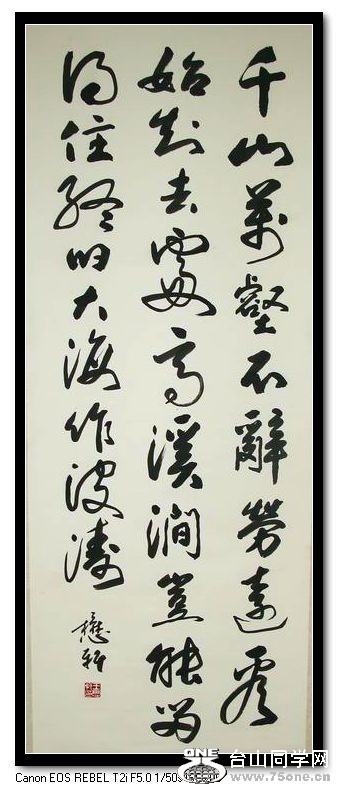 千山萬壑不辭勞遠看
始知去處高溪澗豈能留
得住終归大海作波濤
ONE
台山同学网
www.75one.cn
Canon EOS REBEL T2i F5.0 1/50s